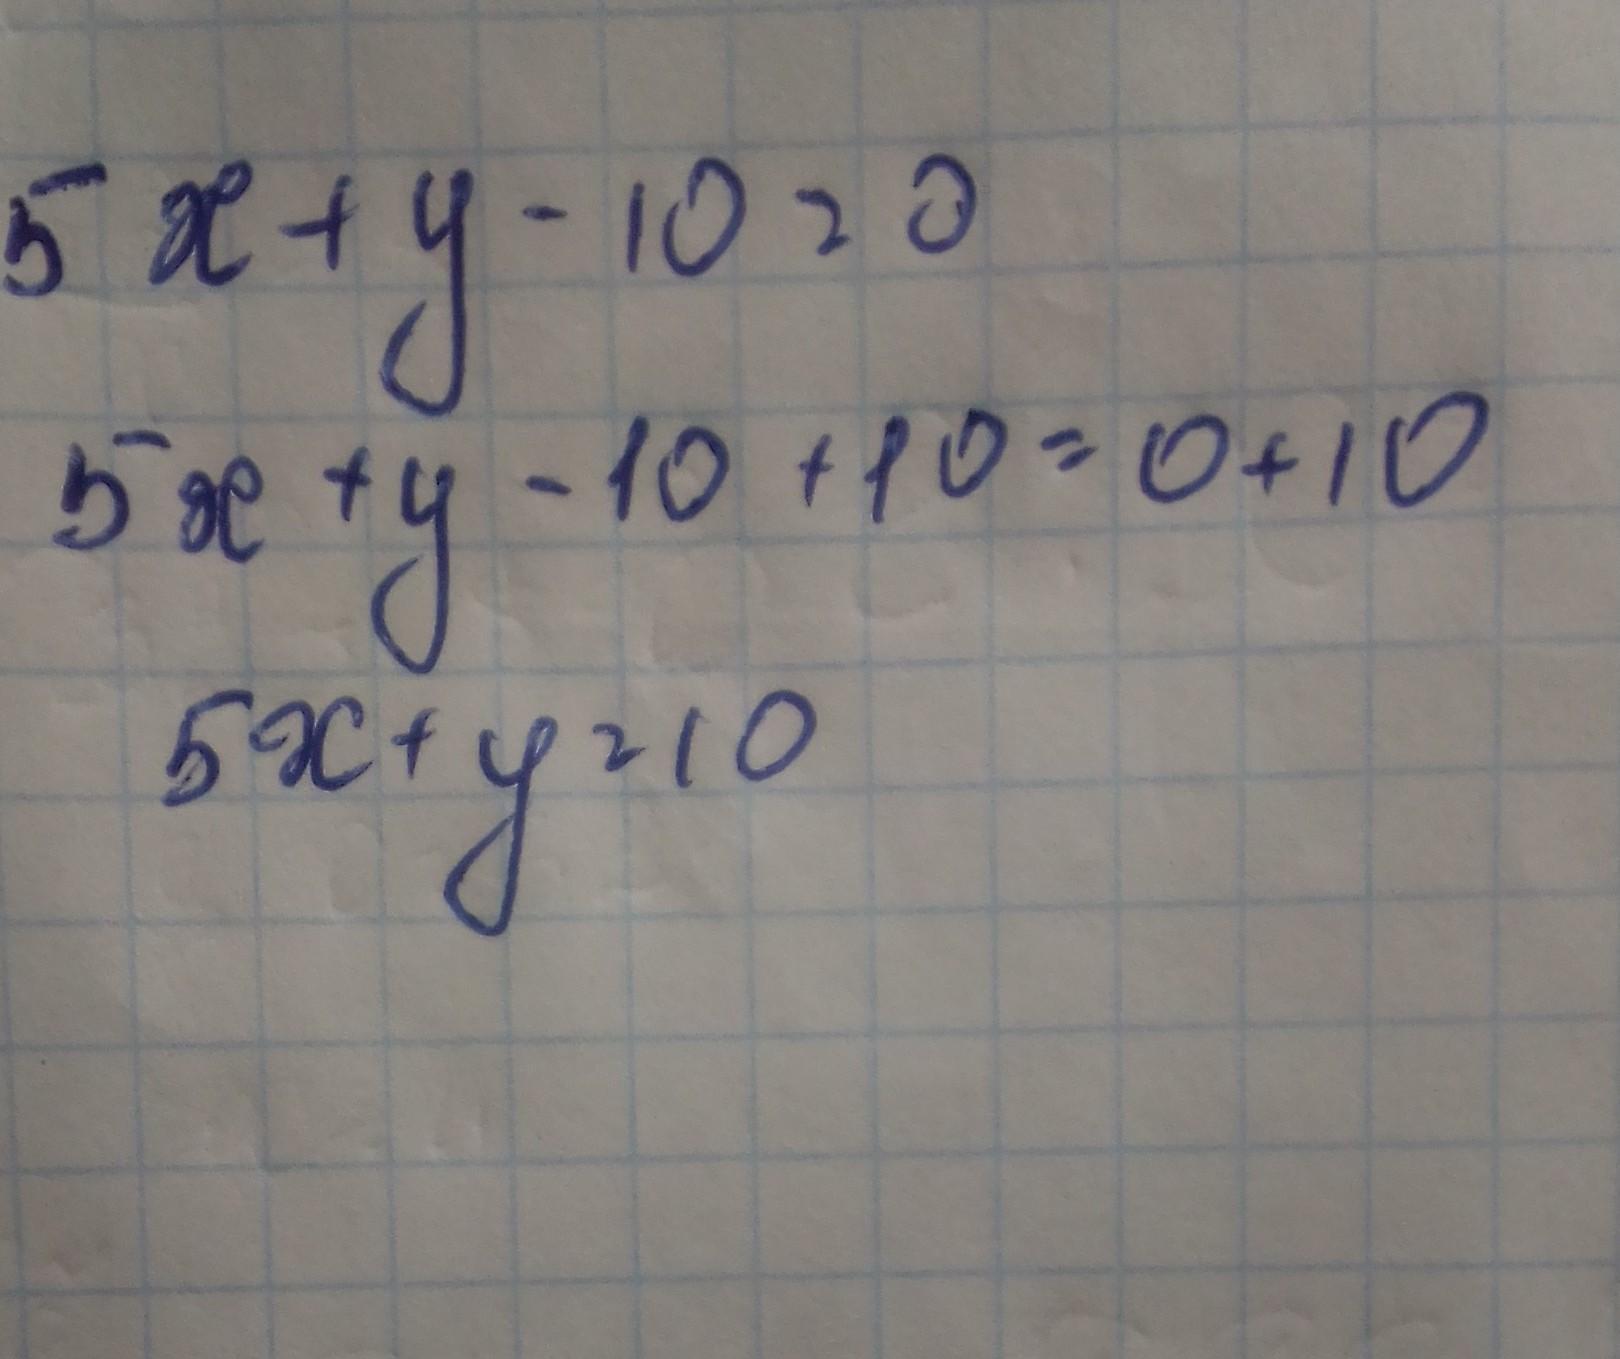 5x + y - 10 = 0
5x + y - 10 + 10 = 0 + 10
5x + y = 10